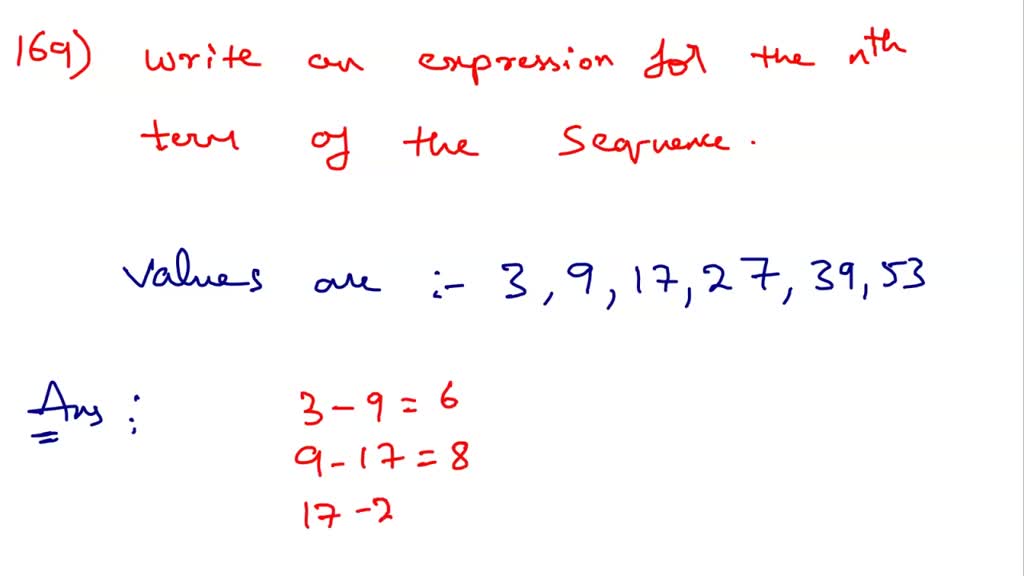 169) write an expression for the nth
term of the Sequence.
Values are :- 3, 9, 17, 27, 39, 53
Ans :
3 - 9 = 6
9 - 17 = 8
17 - 2